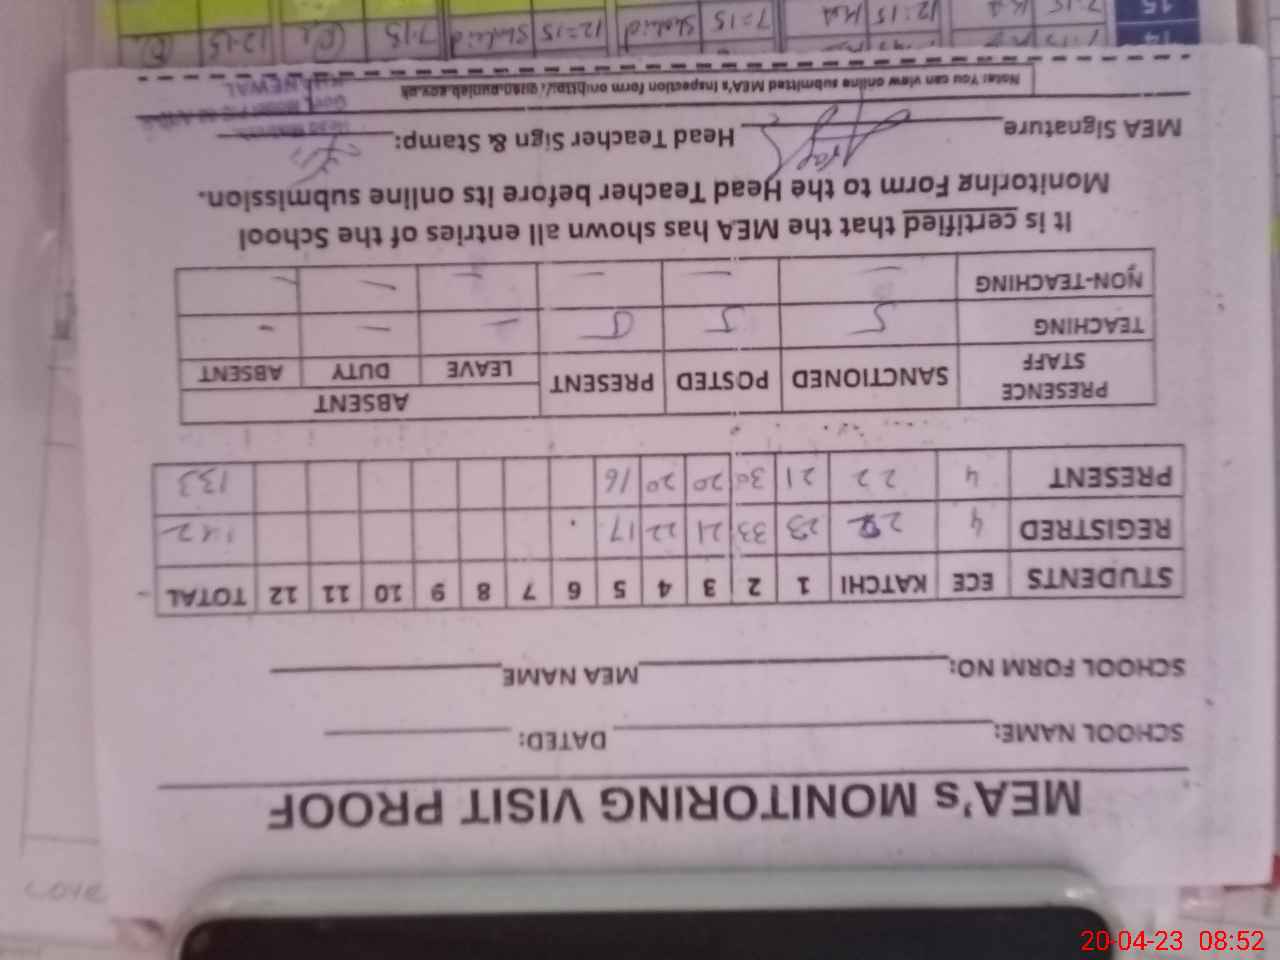 MEA's MONITORING VISIT PROOF
SCHOOL NAME: DATED:
SCHOOL FORM NO: MEA NAME
STUDENTS ECE KATCHI 1 2 3 4 5 6 7 8 9 10 11 12 TOTAL
REGISTRED 4 22 23 33 21 22 17 142
PRESENT 4 22 21 30 20 20 16 133
PRESENCE STAFF SANCTIONED POSTED PRESENT ABSENT
LEAVE DUTY ABSENT
TEACHING 5 5 5 - - -
NON-TEACHING - - - - - -
It is certified that the MEA has shown all entries of the School
Monitoring Form to the Head Teacher before its online submission.
MEA Signature Head Teacher Sign & Stamp:
Note: You can view online submitted MEA's inspection form on
KHANEWAL
14
15
7:15 12:15 7:15 Shahid 12:15 Shahid 7:15 12:15
20-04-23 08:52